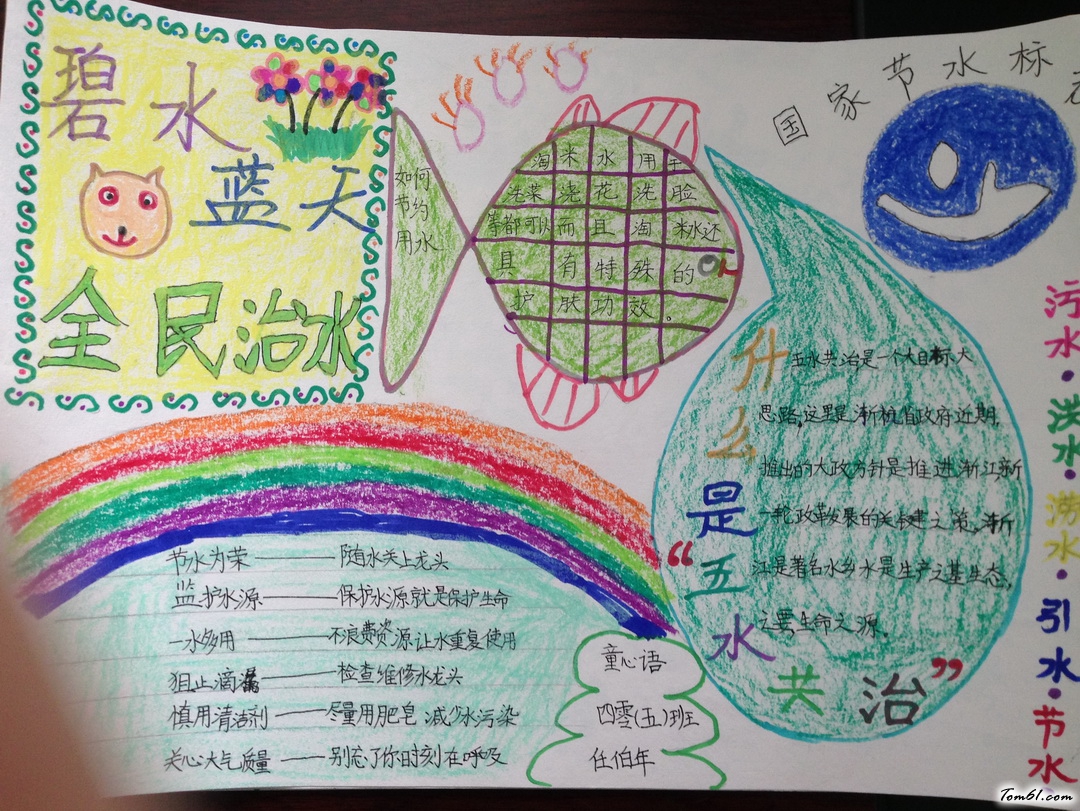 碧水
蓝天
全民治水
如何
节约
用水
淘米水用于
洗菜浇花洗脸
等都可以而且淘米水还
具有特殊的
护肤功效。
国家节水标志
什么是“五水共治”
五水共治是一个大目标大
思路,这里是浙杭省政府近期,
推出的大政方针是推进浙江新
一轮改革发展的关键之策,浙
江是著名水乡水是生产之基生态,
之要生命之源。
污水·洪水·涝水·引水·节水
节水为荣——随水关上龙头
监护水源——保护水源就是保护生命
一水多用——不浪费资源让水重复使用
狙止滴漏——检查维修水龙头
慎用清洁剂——尽量用肥皂减少水污染
关心大气质量——别忘了你时刻在呼吸
童心语
四零(五)班
任伯年
Tom61.com